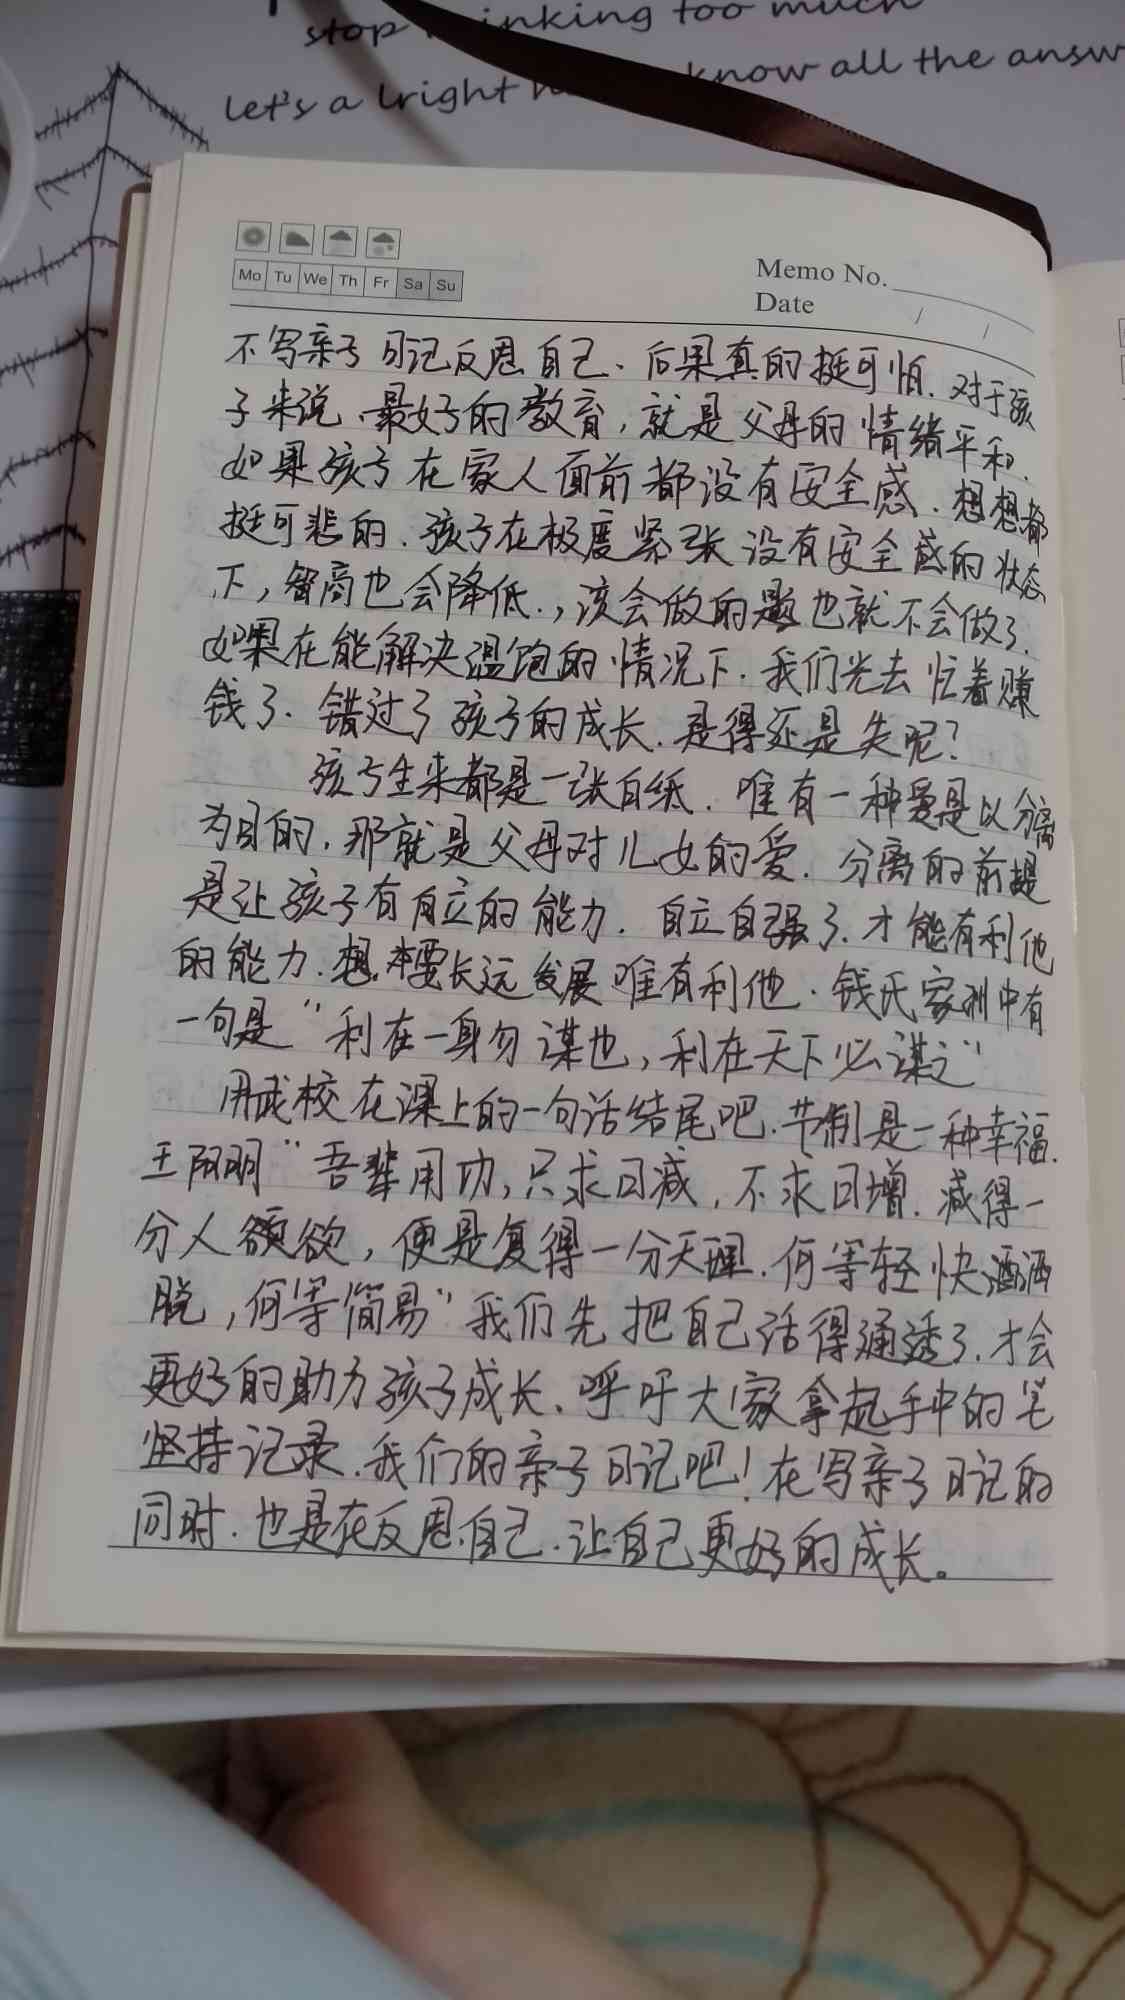 stop thinking too much
let's a lright know all the answ
Mo Tu We Th Fr Sa Su
Memo No.
Date / /
不写亲子日记反思自己、后果真的挺可怕.对于孩
子来说、最好的教育,就是父母的情绪平和.
如果孩子在家人面前都没有安全感.想想都
挺可悲的.孩子在极度紧张没有安全感的状态
下,智商也会降低.,该会做的题也就不会做了.
如果在能解决温饱的情况下.我们光去忙着赚
钱了.错过了孩子的成长.是得还是失呢?
孩子生来都是一张白纸.唯有一种爱是以分离
为目的,那就是父母对儿女的爱.分离的前提
是让孩子有自立的能力.自立自强了.才能有利他
的能力.想要长远发展唯有利他.钱氏家训中有
一句是“利在一身勿谋也,利在天下必谋之”
用戒校在课上的一句话结尾吧.节制是一种幸福.
王阳明“吾辈用功,只求日减,不求日增.减得一
分人欲,便是复得一分天理.何等轻快洒
脱,何等简易”我们先把自己活得通透了.才会
更好的助力孩子成长、呼吁大家拿起手中的笔
坚持记录.我们的亲子日记吧!在写亲子日记的
同时.也是在反思.自己.让自己更好的成长。